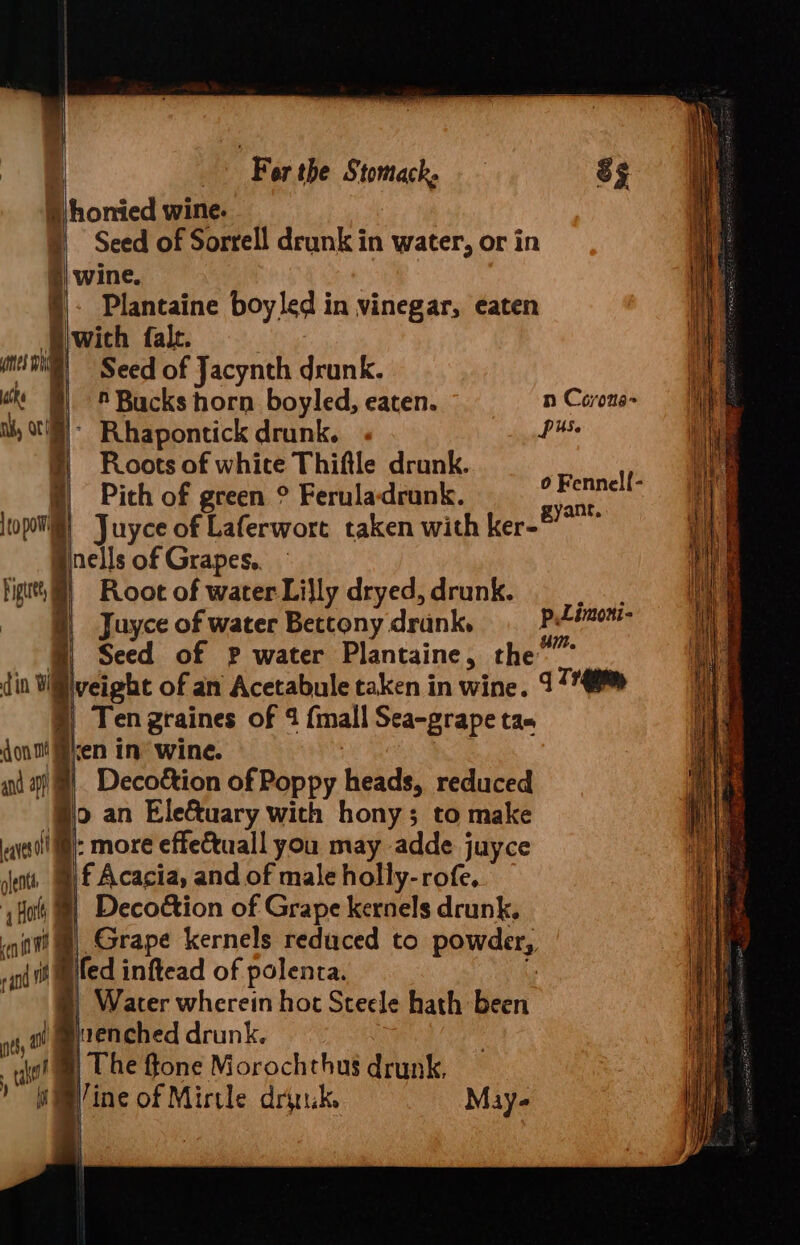 For the Stomack. 85
honied wine.
Seed of Sorrell drunk in water, or in
wine.
Plantaine boyled in vinegar, eaten
with ſalt.
Seed of Jacynth drunk.
n Bucks horn boyled, eaten. n Corono-
Rhapontick drunk. pus.
Roots of white Thiſtle drunk.
Pith of green o Ferula drunk. o Fennell-
Juyce of Laſerwort taken with ker- gyant.
nells of Grapes.
Root of water Lilly dryed, drunk.
Juyce of water Bettony drunk. p Limoni-
Seed of p water Plantaine, the um.
weight of an Acetabule taken in wine. q
Ten graines of q ſmall Sea-grape ta-
ken in wine.
Decoction of Poppy heads, reduced
o an Electuary with hony; to make
: more effectuall you may adde juyce
f Acacia, and of male holly-roſe.
Decoction of Grape kernels drunk.
Grape kernels reduced to powder,
ſed inſtead of polenta.
Water wherein hot Steele hath been
uenched drunk.
The ſtone Morochthus drunk.
ine of Mirtle drunk. May-